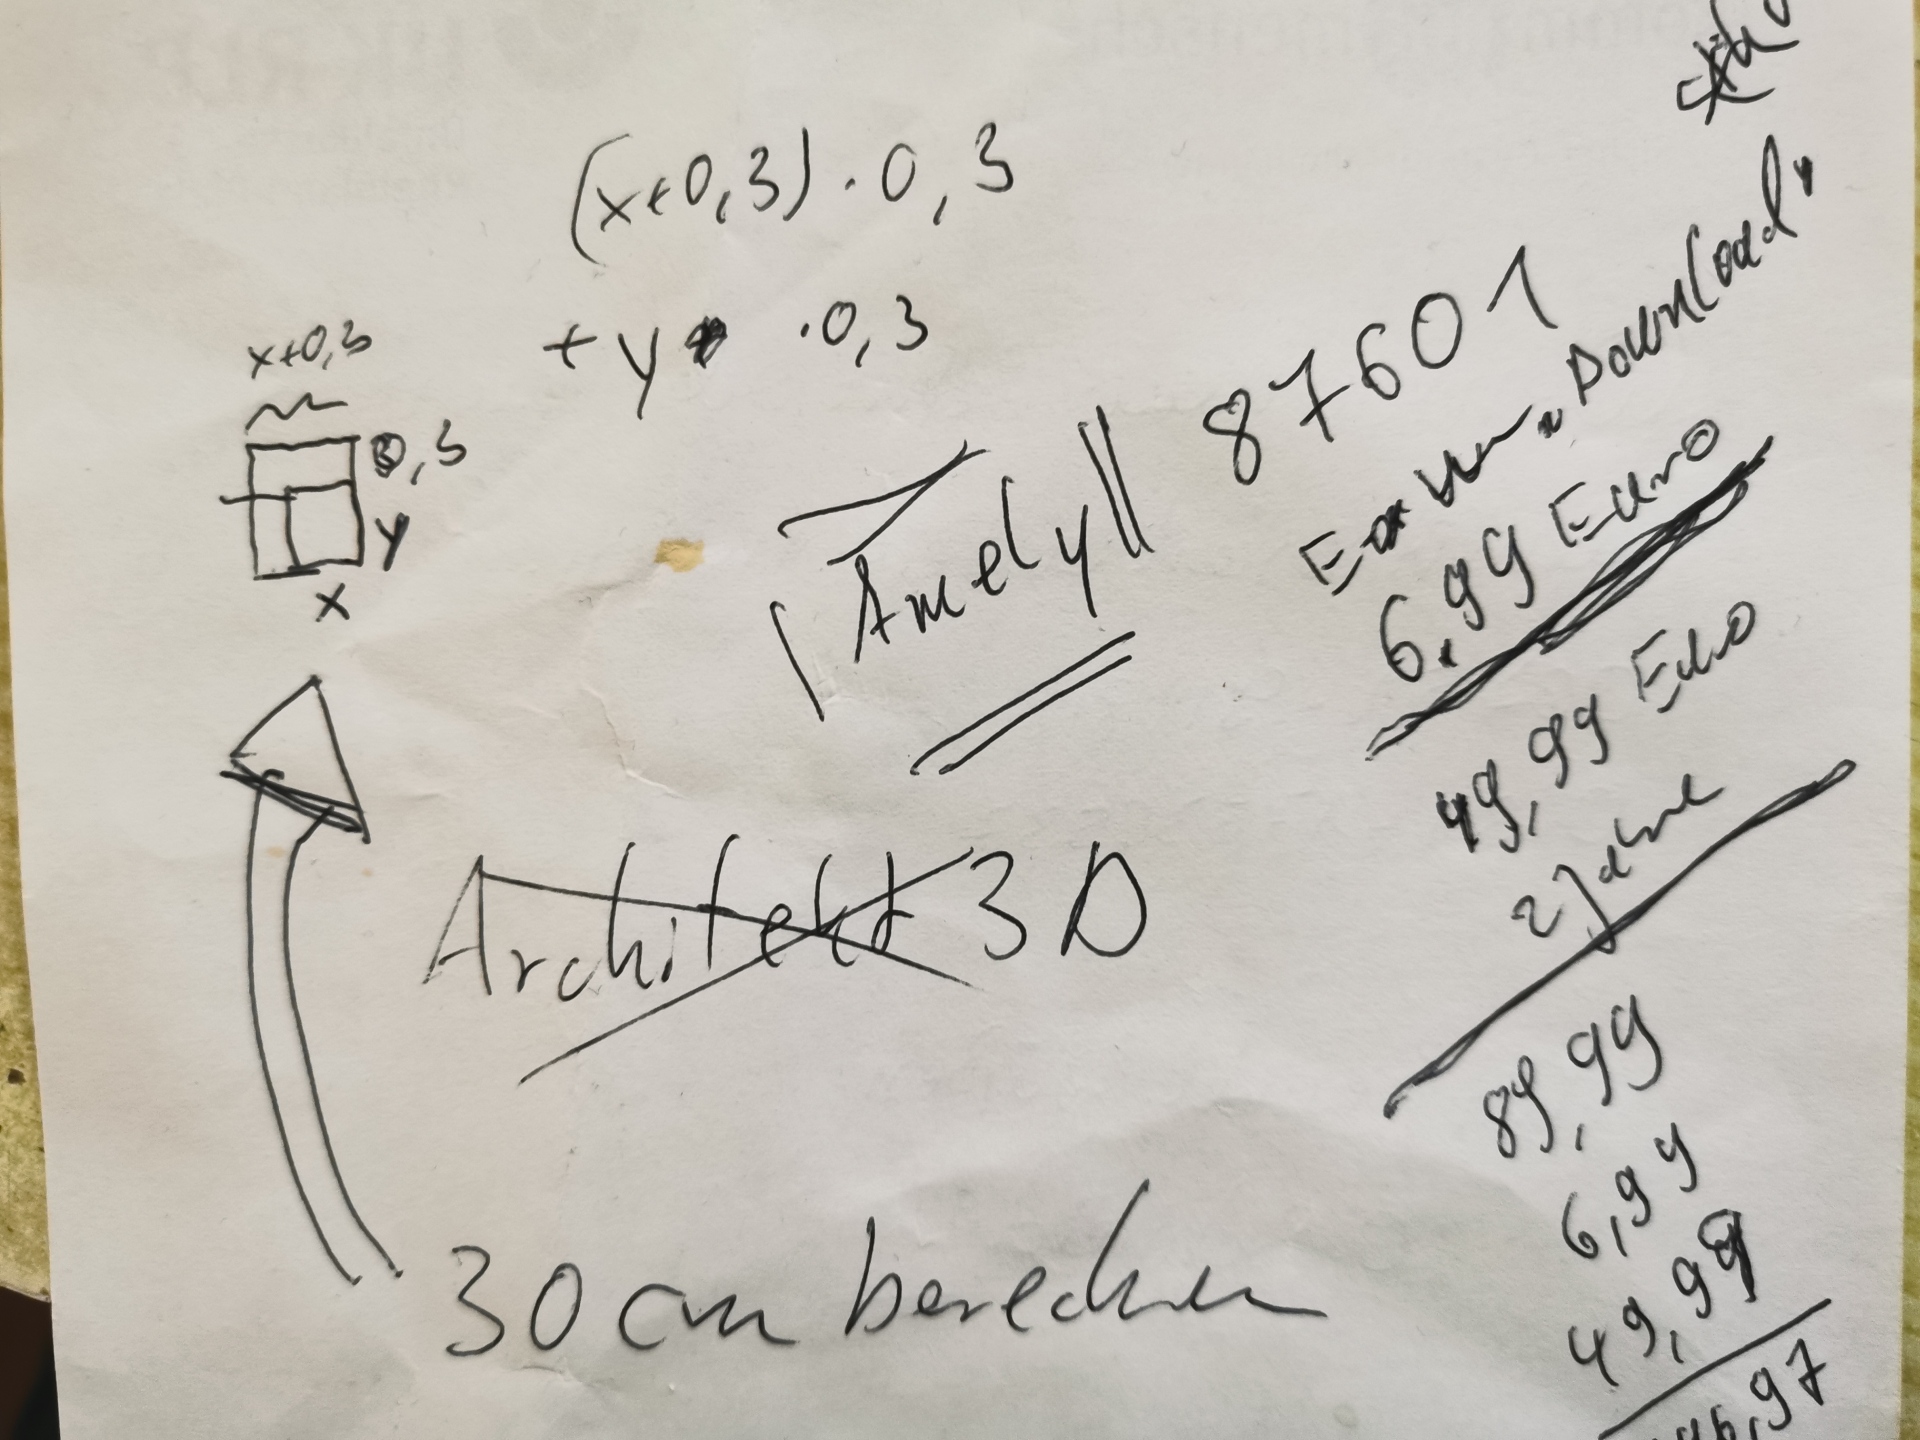 (x+0,3) · 0,3
+ y · 0,3
x+0,3
0,3
y
x
Amely
87601
Download"
6,99 Euro
49,99 Euro
2 Jahre
Architekt 3D
89,99
6,99
49,99
46,97
30 cm berechnen